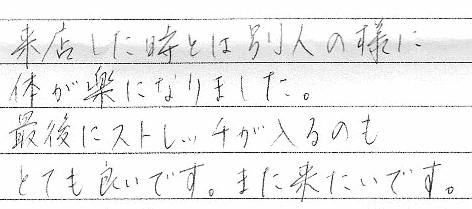 来店した時とは別人の様に
体が楽になりました。
最後にストレッチが入るのも
とても良いです。また来たいです。